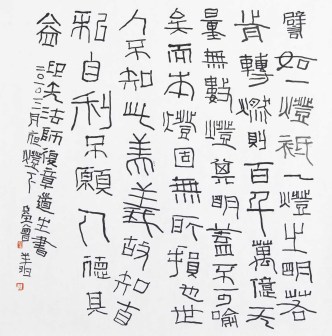 譬如一燈祇一燈之明若
肯轉燃則百千萬億无
量無數燈其明蓋不可喻
矣而本燈固無所損也世
人不知此義故知自
私自利不願人德其
益 印光法師復章道生書
二〇〇三月夜燈下